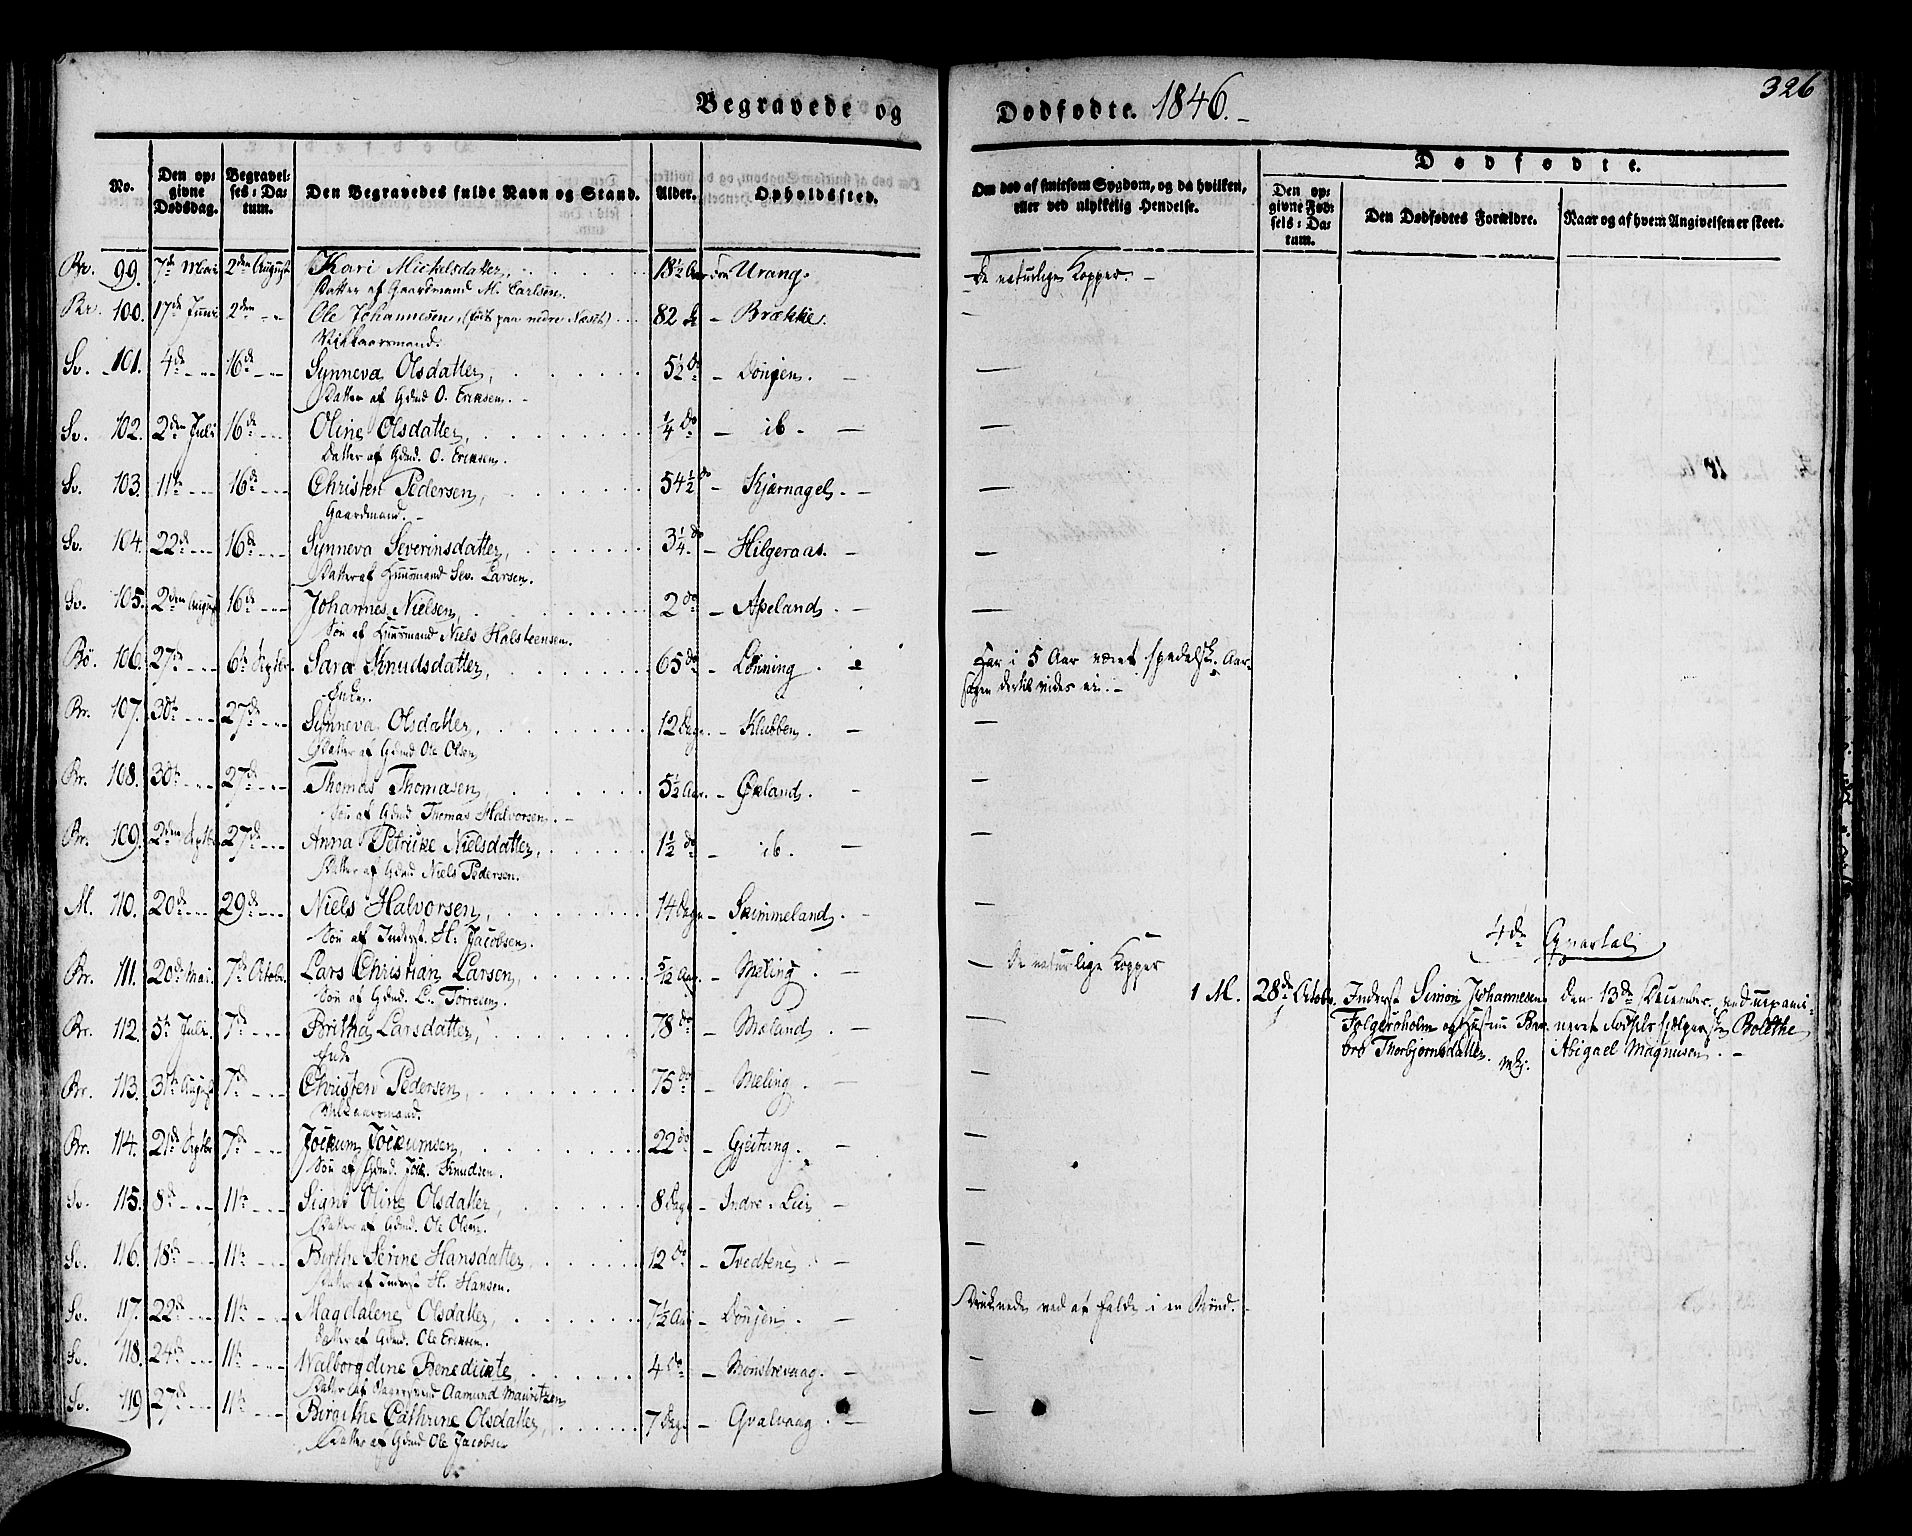 326
Begravede og Dødfødte. 1846.
Dødfødte.
No. Den opgivne Dødsdag. Begravelses-Datum. Den Begravedes fulde Navn og Stand. Alder. Opholdssted. Om død af smitsom Sygdom, og da hvilken, eller ved ulykkelig Hendelse. Den opgivne Fødsels-Datum. Den Dødfødtes Forældre. Naar og af hvem Angivelsen er skeet.
Br. 99. 7de Mai 2den August Kari Mickelsdatter, 18½ Aar Urang. De naturlige Kopper. -
Datter af Gaardmand M. Carlsen.
Br. 100. 17de Juni 2den - - Ole Johannesen, (født paa nedre Næss) 82 - Brække. -
Vilkaarsmand.
Sv. 101. 4de - - 16de - - Synneva Olsdatter, 5½ Do - Dönjen. - -
Datter af Gdmd O. Eriksen. -
Sv. 102. 2den Juli 16de - - Oline Olsdatter, ¼ Do - ib. - -
Datter af Gdmd. O. Eriksen.
Sv. 103. 11te - - 16de - - Christen Pedersen, 54½ Do - Kjærnagel. - -
Gaardmand. -
Sv. 104. 22de - - 16de - - Synneva Severinsdatter, 3¼ Do - Hilgeraas. - -
Datter af Huusmand Sev. Larsen.
Sv. 105. 2den August 16de - - Johannes Nielsen, 2 Do - Apeland. - -
Søn af Huusmand Niels Halsteensen.
Bö. 106. 27de - - 6te Septbr. Sara Knudsdatter, 65 Do - Lönning. Har i 5 Aar været spedalsk. Aar-
Enke. sagen dertil vides ei. -
Br. 107. 30te - - 27de - - Synneva Olsdatter, 12 Dage - Klubben. - -
Datter af Gdmd Ole Olsen
Br. 108. 30te - - 27de - - Thomas Thomasen, 5½ Aar. - Økland. - -
Søn af Gdmd Thomas Halvorsen. -
Br. 109. 2den Septbr 27de - - Anna Petrike Nielsdatter, 1½ Do - ib. - -
Datter af Gdmd Niels Pedersen.
M. 110. 20de - - 29de - - Niels Halvorsen, 14 Dage - Skimmeland. - -
Søn af Inderst. H. Jacobsen.
4de Qvartal
Br. 111. 20de Mai. 7de Octobr. Lars Christian Larsen, 5/12 Aar - Mæling. - De naturlige Kopper
Søn af Gdmd. L. Torresen.
1 M. 28de Octobr. Inderst Simon Johannesen Den 13de December, ved uexami-
Følgeroholm og Hustru Bro- neret Fødselshjælperske Bolethe
bro Thorbjørnsdatter. Abigael Magnusen. -
Br. 112. 5te Juli. 7de - - Britha Larsdatter, 78 Do - Mæland. - -
Enke
Br. 113. 31te August 7de - - Christen Pedersen, 75 Do - Mæling. - -
Vilkaarsmand.
Br. 114. 21de Septbr 7de - - Jockum Jockumsen, 22 Do - Gjeitung. - -
Søn af Gdmd. Jock. Knudsen.
Sv. 115. 8de - - 11te - - Signi Oline Olsdatter, 8 Dage - Indre Lier - -
Datter af Gdmd. Ole Olsen.
Sv. 116. 18de - - 11te - - Birthe Serine Hansdatter, 12 Do - Tvedtene. - -
Datter af Inderst H. Hansen.
Sv. 117. 22de - - 11te - - Magdalene Olsdatter, 7½ Aar - Dönjen. - Druknede ved at falde i en Brønd. -
Datter af Gdmd. Ole Eriksen.
Sv. 118. 24de - - 11te - - Walborgdine Benedickte 4 Do - Mönstrevaag. - -
Datter af Aamund Mauritzen
Sv. 119 27de - - 11te - - Birgithe Cathrine Olsdatter, 7 Dage - Qvalvaag. - -
Datter af Gdmd Ole Jacobsen